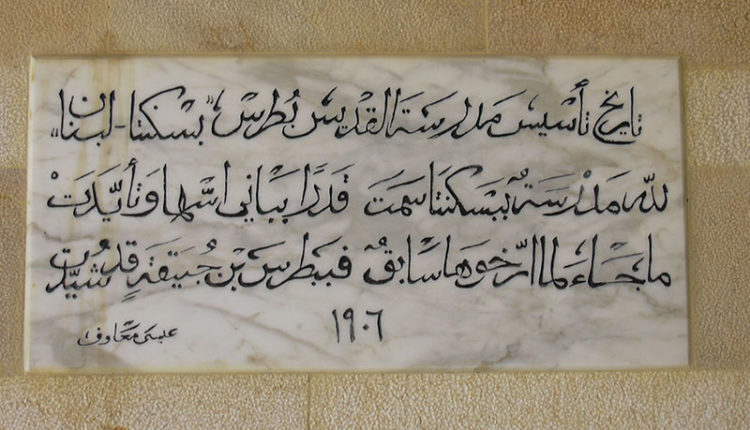 تاريخ تأسيس مدرسة القديس بطرس "بسكنتا - لبنان"
لله مَدْرسَةٌ ببسكنتا سمَتَ قدرًا بباني اسّها وتأيّدَتْ
ما جاءَ لما ارّخوها سابقٌ فببطرسَ بن جُبَيقَةٍ قد شيّدت
١٩٠٦
عيسى معلوف